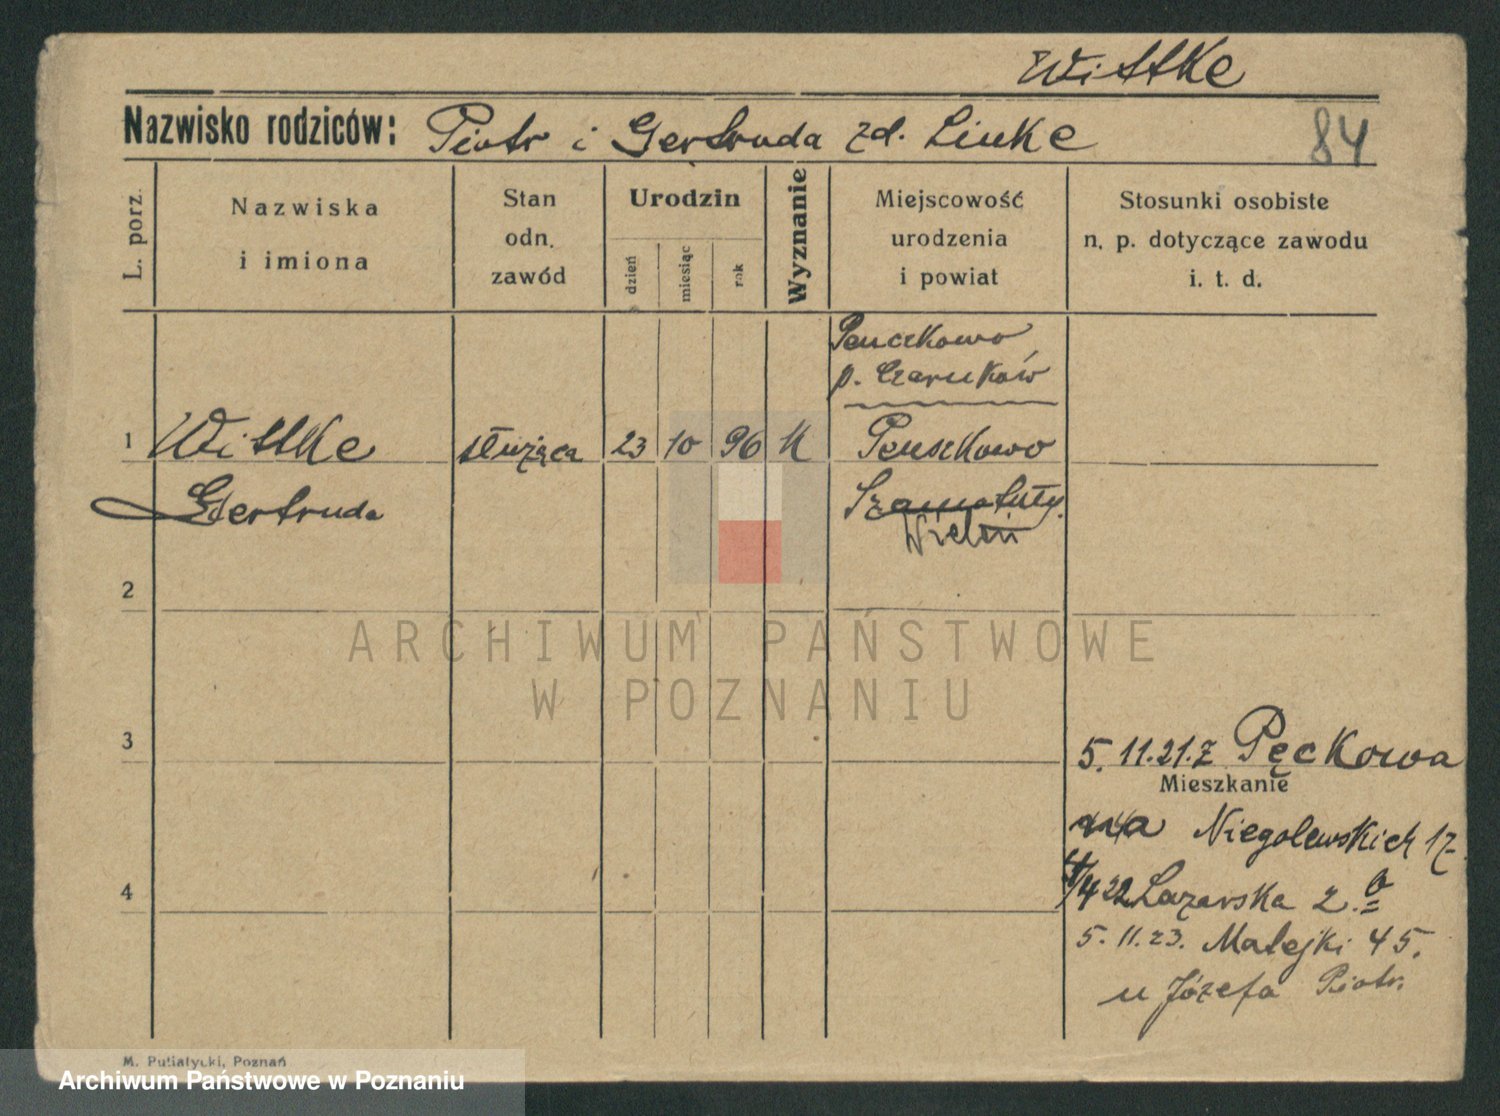 Wittke
Nazwisko rodziców: Piotr i Gertruda zd. Linke
84
L. porz. Nazwiska i imiona Stan odn. zawód Urodzin dzień miesiąc rok Wyznanie Miejscowość urodzenia i powiat Stosunki osobiste n. p. dotyczące zawodu i. t. d.
Penczkowo
p. Czarnków
1 Wittke służąca 23 10 96 K Penskowo
Gertruda Szamotuły.
Wieleń
2
ARCHIWUM PAŃSTWOWE
W POZNANIU
3 5.11.21. z Pęckowa
Mieszkanie
na Niegolewskich 17
4 4/4 22 Łazarska 2. b
5.11.23. Matejki 45.
u Józefa Piotr.
M. Putiatycki, Poznań
Archiwum Państwowe w Poznaniu